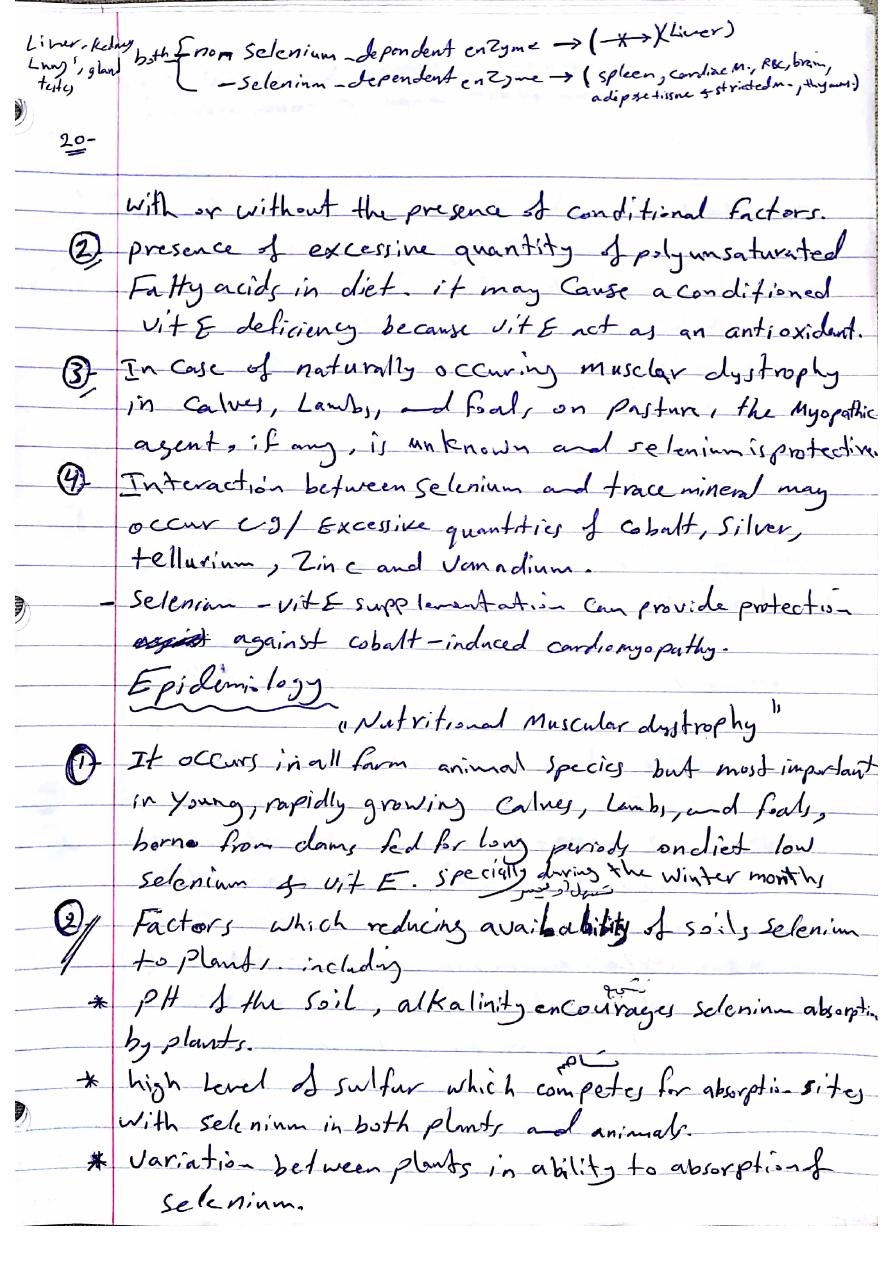 Liver, Kedny
Lung's, gland
testes
both { non selenium - dependent enzyme → ( * ) (Liver)
- selenium - dependent enzyme → (spleen, cardiac M., RBC, brain,
adipose tissue & striated m., thymus)
20-
with or without the presence of conditional factors.
2- presence of excessive quantity of polyunsaturated
Fatty acids in diet. it may Cause a conditioned
vit E deficiency because vit E act as an antioxident.
3- In Case of naturally occuring musclar dystrophy
in Calves, Lambs, and foals, on Pasture, the Myopathic
agent, if any, is unknown and selenium is protective.
4- Interaction between selenium and trace mineral may
occur eg/ Excessive quantities of Cobalt, Silver,
tellurium, Zinc and Vanadium.
- Selenium - vit E supplementation Can provide protection
against cobalt-induced cardiomyopathy.
Epidimiology
"Nutritional Muscular dystrophy"
1- It occurs in all farm animal species but most important
in Young, rapidly growing Calves, Lambs, and foals,
borne from dams fed for long periods on diet low
selenium & vit E. specially during the winter months
2 Factors which reducing availability of soils selenium
to plants. including
تشجع
* PH of the soil, alkalinity encourages selenium absorption
by plants.
* high Level of sulfur which competes for absorption sites
with selenium in both plants and animals.
* Variation between plants in ability to absorption of
selenium.